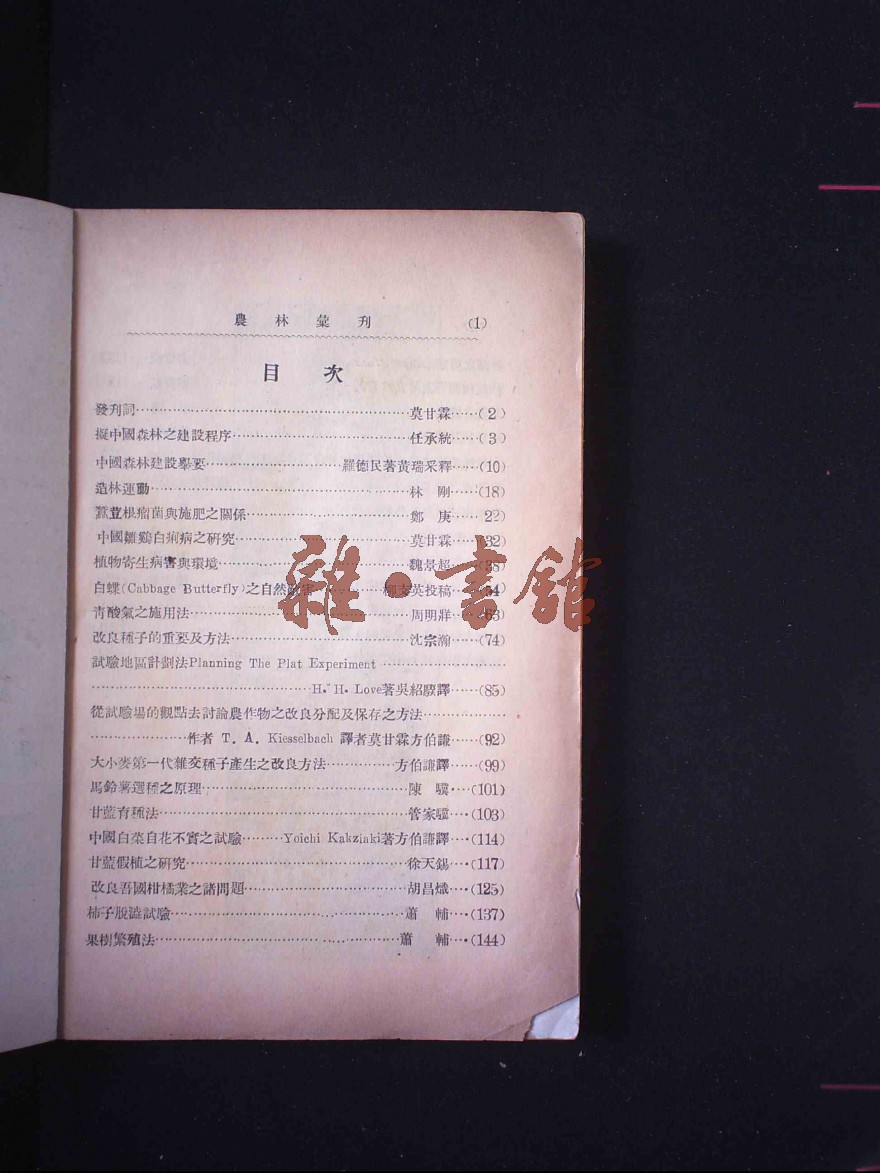 農林彙刊 (1)
目次
發刊詞……莫甘霖……(2)
擬中國森林之建設程序……任承統……(3)
中國森林建設擧要……羅德民著黃瑞采釋……(10)
造林運動……林剛……(18)
荳根瘤菌與施肥之關係……鄭庚……22)
中國雛鷄白痢病之硏究……莫甘霖……32)
植物寄生病害與環境……魏景超……38)
白蝶(Cabbage Butterfly)之自然敵害……柳支英投稿……54)
靑酸氣之施用法……周明牂……63)
改良種子的重要及方法……沈宗瀚……(74)
試驗地區計劃法Planning The Plat Experiment……
……H. H. Love著吳紹騤譯……(85)
從試驗場的觀點去討論農作物之改良分配及保存之方法……
……作者 T. A. Kiesselbach 譯者莫甘霖方伯謙……(92)
大小麥第一代雜交種子產生之改良方法……方伯謙譯……(99)
馬鈴薯選種之原理……陳驥…(101)
甘藍育種法……管家驥…(103)
中國白菜自花不實之試驗……Yoichi Kakziaki著方伯謙譯…(114)
甘藍假植之硏究……徐天錫…(117)
改良吾國柑橘業之諸問題……胡昌熾…(125)
柿子脫澁試驗……蕭輔…(137)
果樹繁殖法……蕭輔…(144)
雜·書館